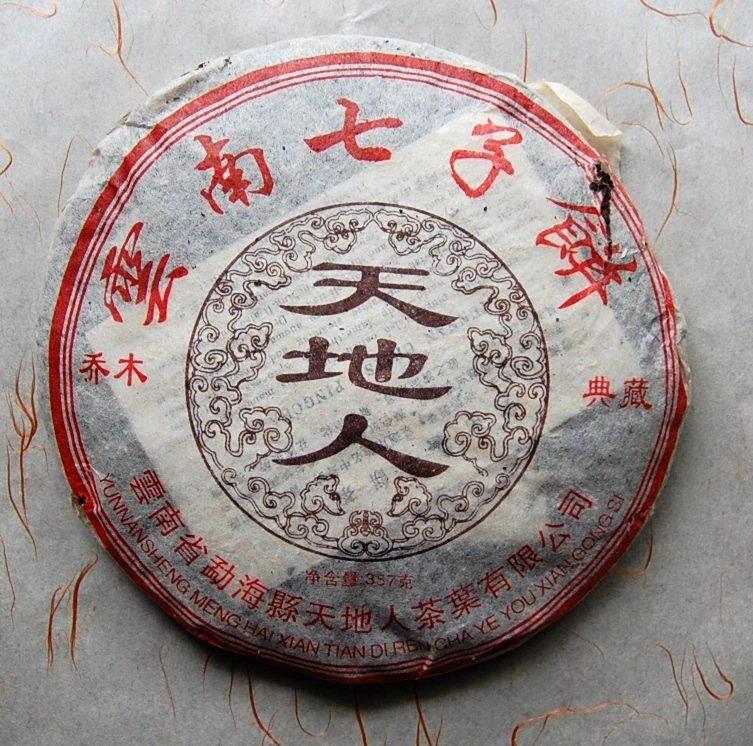 雲南七子餅
天地人
乔木
典藏
净含量357克
雲南省勐海縣天地人茶葉有限公司
YUNNANSHENG MENG HAI XIAN TIAN DI REN CHA YE YOU XIAN GONG SI